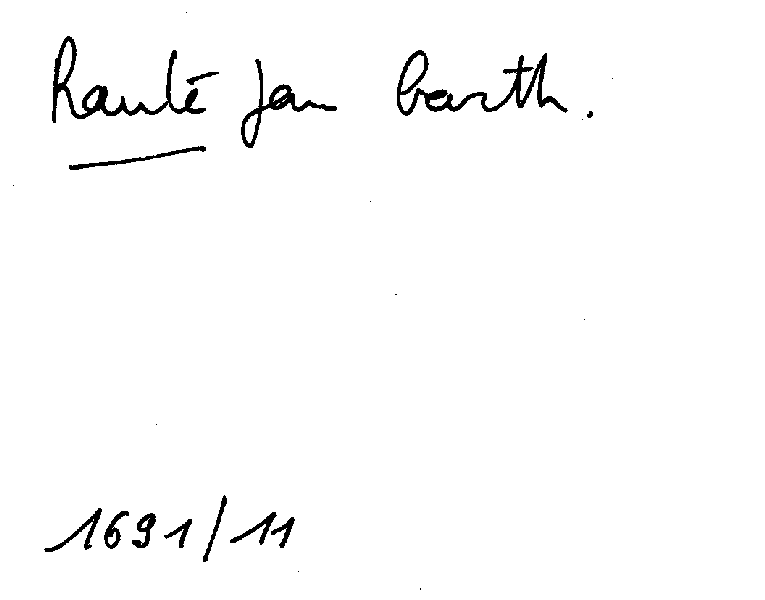 Hanté Jan Barth.
1691/11